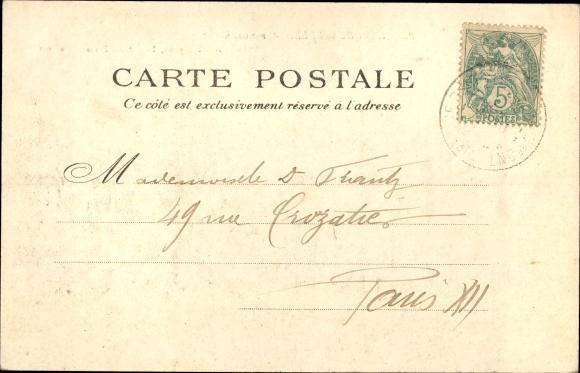 CARTE POSTALE
Ce côté est exclusivement réservé à l'adresse
5c
POSTES
Mademoiselle D Frantz
49 rue Crozatier
Paris XII